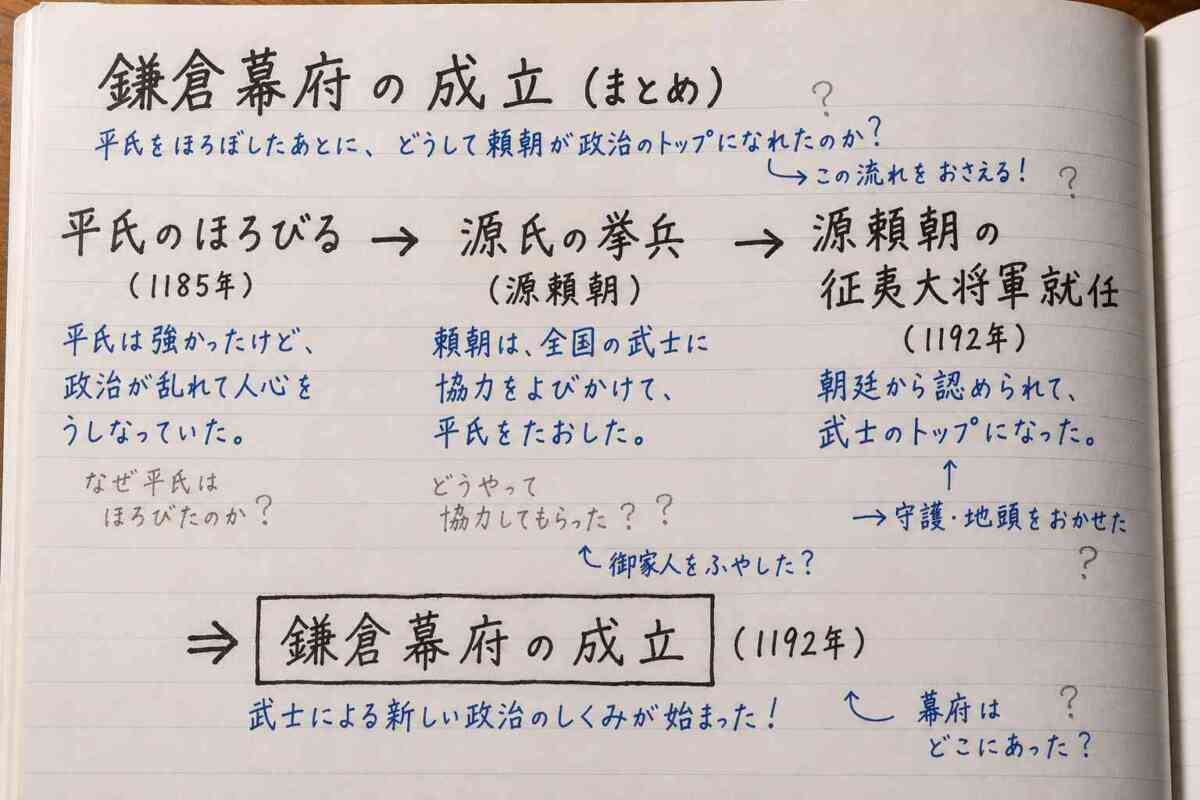 鎌倉幕府の成立(まとめ)
?
平氏をほろぼしたあとに、どうして頼朝が政治のトップになれたのか?
→この流れをおさえる!
?
平氏のほろびる → 源氏の挙兵 → 源頼朝の
(1185年)
(源頼朝)
征夷大将軍就任
(1192年)
平氏は強かったけど、
政治が乱れて人心を
うしなっていた。
頼朝は、全国の武士に
協力をよびかけて、
平氏をたおした。
朝廷から認められて、
武士のトップになった。
なぜ平氏は
ほろびたのか?
どうやって
協力してもらった? ?
↑
→守護・地頭をおかせた
?
御家人をふやした?
⇒ 鎌倉幕府の成立 (1192年)
武士による新しい政治のしくみが始まった!
幕府は
どこにあった?
?